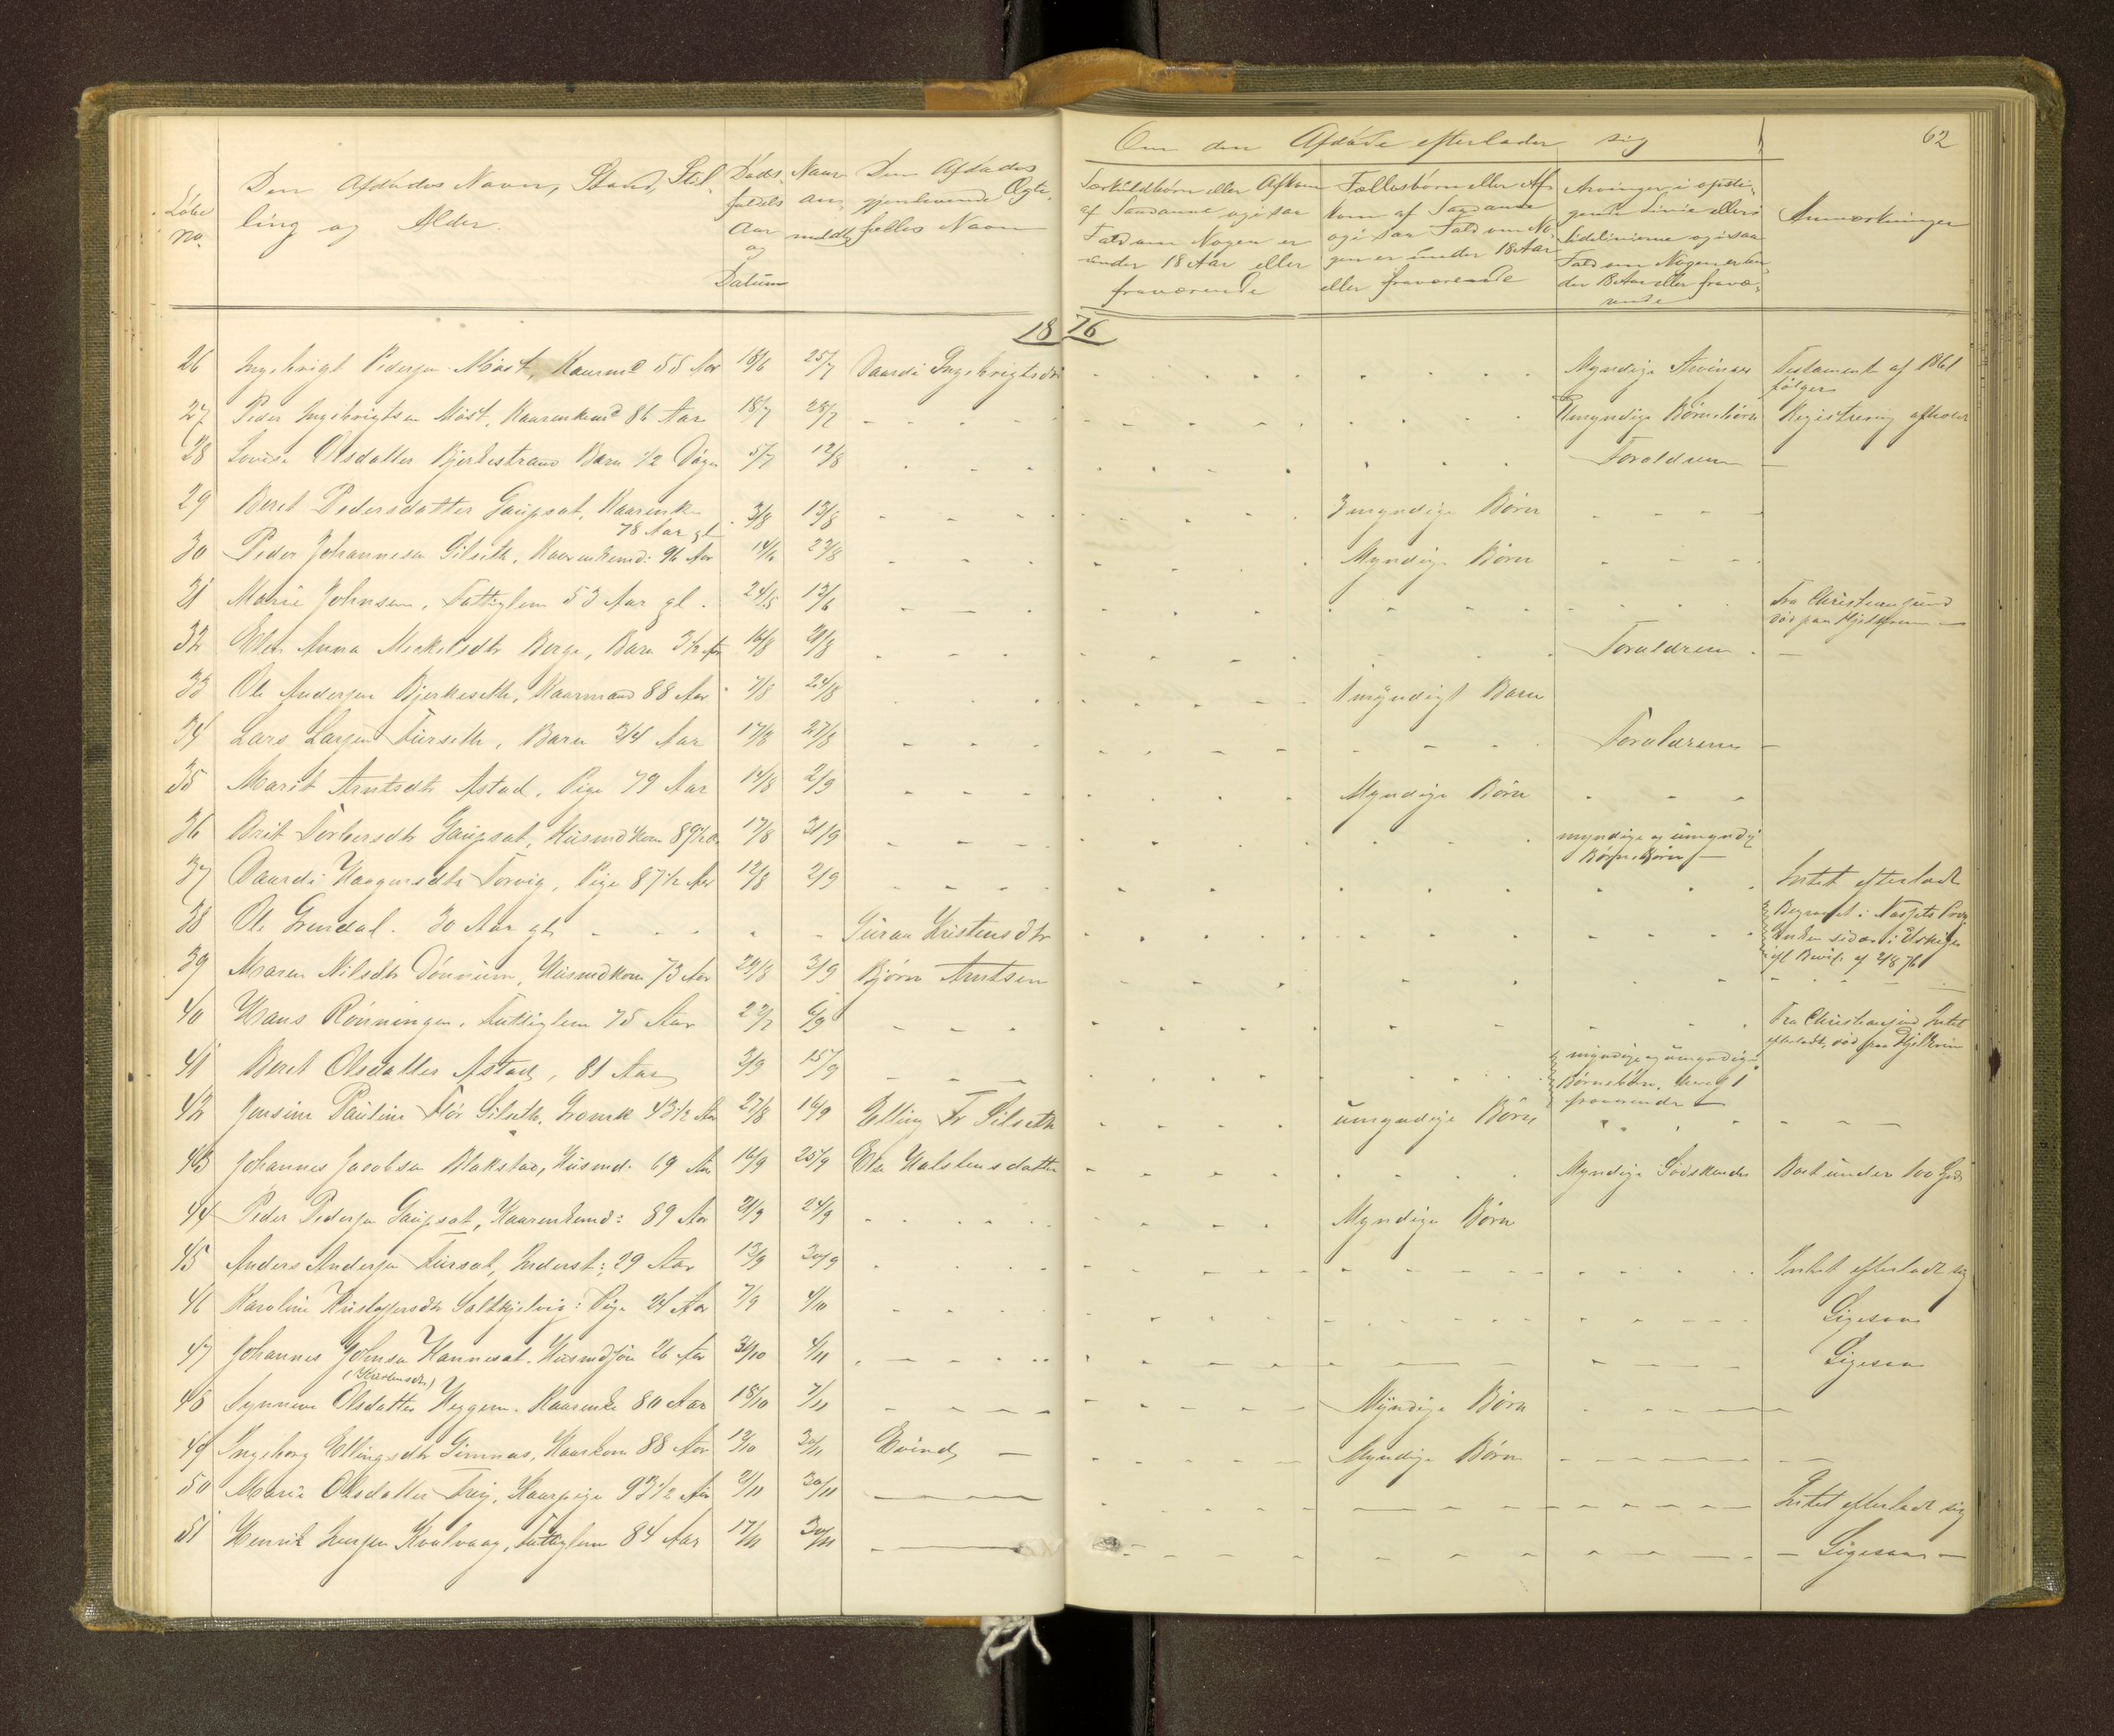 62
Om den Afdøde efterlader sig
Løbe No.
Den Afdødes Navn, Stand, Stilling og Alder.
Dødsfaldets Aar og Datum
Naar anmeldt
Den Afdødes gjenlevende Ægtefælles Navn
Særkuldbørn eller Afkom af Saadanne og i saa Fald om Nogen er under 18 Aar eller fraværende
Fællesbørn eller Afkom af Saadanne og i saa Fald om Nogen er under 18 Aar eller fraværende
Arvinger i opstigende Linie eller i Sidelinierne og i saa Fald om Nogen er under 18 Aar eller fraværende
Anmærkninger
1876
26 Ingebrigt Pedersen Møst, Kaarmd 55 Aar 18/6 25/7 Daardi Ingebrigtsdtr Myndige Arvinger Testament af 1861 følger
27 Peder Ingebrigtsen Møst, Kaarenkemd 86 Aar 18/7 25/7 Umyndige Børnebørn Registrering afholdt
28 Lovise Olsdatter Bjerkestrand Barn 1/2 Døgn 5/7 12/8 Forældrene
29 Beret Pedersdatter Gaupsæt, Kaarenke 78 Aar gl 3/8 13/8 3 myndige Børn
30 Peder Johannesen Gilseth, Kaarenkemd: 96 Aar 14/6 23/8 Myndige Børn
31 Marie Johnsen, Fattiglem 53 Aar gl. 24/5 13/6 Fra Christiansund død paa Hjelpøen
32 Ellen Anna Mickelsdtr Berge, Barn 3 1/2 Aar 16/8 21/8 Forældrene
33 Ole Andersen Bjerkeseth, Kaarmand 88 Aar 7/8 24/8 1 myndigt Barn
34 Lars Larsen Furseth, Barn 3/4 Aar 17/8 27/8 Forældrene
35 Marit Arntsdtr Astad, Pige 79 Aar 14/8 2/9 Myndige Børn
36 Brit Torbersdtr Gaupsæt, Husmdkone 89 1/2 Aar 17/8 31/9 myndige og umyndige Børnebørn
37 Daardi Haagensdtr Torvig, Pige 87 1/2 Aar 12/8 2/9 Intet efterladt
38 Ole Grendal. 30 Aar gl. Guraa Kristensdtr Begravet i Enken sidder i Uskifte ifl Bevil. af 2/8 76
39 Maren Nilsdtr Dønnum, Husmdkone 73 Aar 29/8 3/9 Bjørn Arntsen
40 Hans Rønningen, Fattiglem 75 Aar 22/7 6/9 Fra Christiansund Intet efterladt, død paa
41 Beret Olsdatter Astad, 81 Aar 3/9 15/9 myndige og umyndige Børnebørn, hvoraf 1 fraværende
42 Jensine Pauline Flør Gilseth, Gaardmk 43 1/2 Aar 27/8 16/9 Elling Fr Gilseth umyndige Børn
43 Johannes Jacobsen Blakstad, Husmd. 69 Aar 16/9 25/9 Ellen Halstensdatter Myndige Sødskende Boet under 100 Spd
44 Peder Pedersen Gaupsæt, Kaarenkemd: 89 Aar 21/9 24/9 Myndige Børn
45 Anders Andersen Fursæt, Inderst: 29 Aar 13/9 30/9 Intet efterladt sig
46 Karoline Kristoffersdtr Saltkjelvig: Pige 24 Aar 7/9 4/10 Ligesaa
47 Johannes Johnsen Hannesæt. Husmdsøn 26 Aar 30/10 4/11 Ligesaa
48 Synneve Olsdatter Heggem. Kaarenke 80 Aar 18/10 7/11 Myndige Børn
49 Ingeborg Ellingsdtr Gimnæs, Kaarkone 88 Aar 12/10 30/11 Eivind Myndige Børn
50 Marie Olsdatter Frei, Kaarpige 93 1/2 Aar 2/11 30/11 Intet efterladt sig
51 Henrik Iversen Kvalvaag, Fattiglem 84 Aar 17/11 30/11 Ligesaa